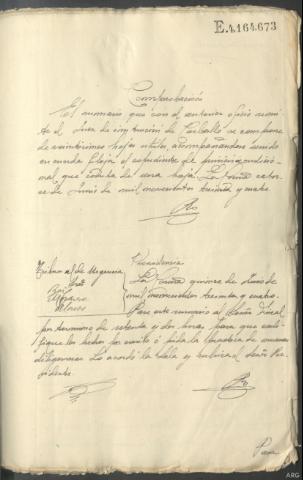 E.4164.673
Comprobación
El sumario que con el anterior oficio remi-
te el Juez de instrucción de Carballo se compone
de veintiseis hojas utiles acompañandose unido
en cuerda floja el expediente de prisión
que consta de una hoja. La Coruña cator-
ce de Junio de mil novecientos treinta y cuatro
Tribunal de Urgencia
Providencia
La Coruña quince de Junio de
mil novecientos treinta y cuatro.
Pase este sumario al Señor Fiscal
por termino de setenta y dos horas para que cali-
fique los hechos por escrito o pida la practica de nuevas
diligencias. Lo acordó la Sala y rubrica el Señor Pre-
sidente.
ARG